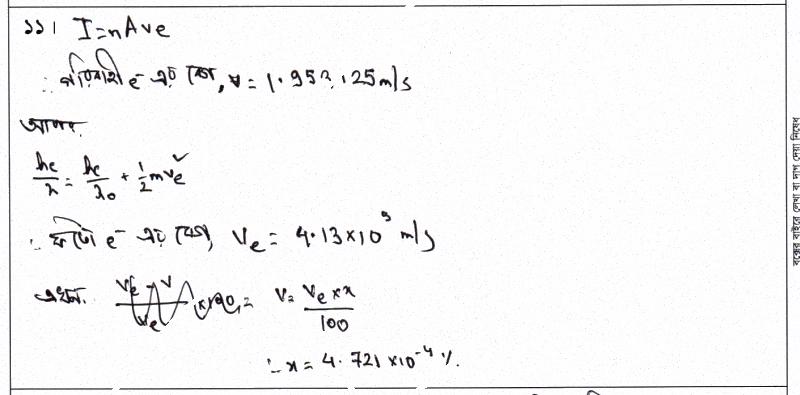 ১১। I=nAve
∴ পরিবাহী e⁻ এর বেগ, v = 1.953125 m/s
আবার,
hc/λ = hc/λ₀ + 1/2 mvₑ²
∴ ফটো e⁻ এর বেগ, vₑ = 4.13×10⁵ m/s
এখন, v = vₑ × x / 100
∴ x = 4.721 × 10⁻⁴ %.
বক্সের বাইরে লেখা বা দাগ দেয়া নিষেধ